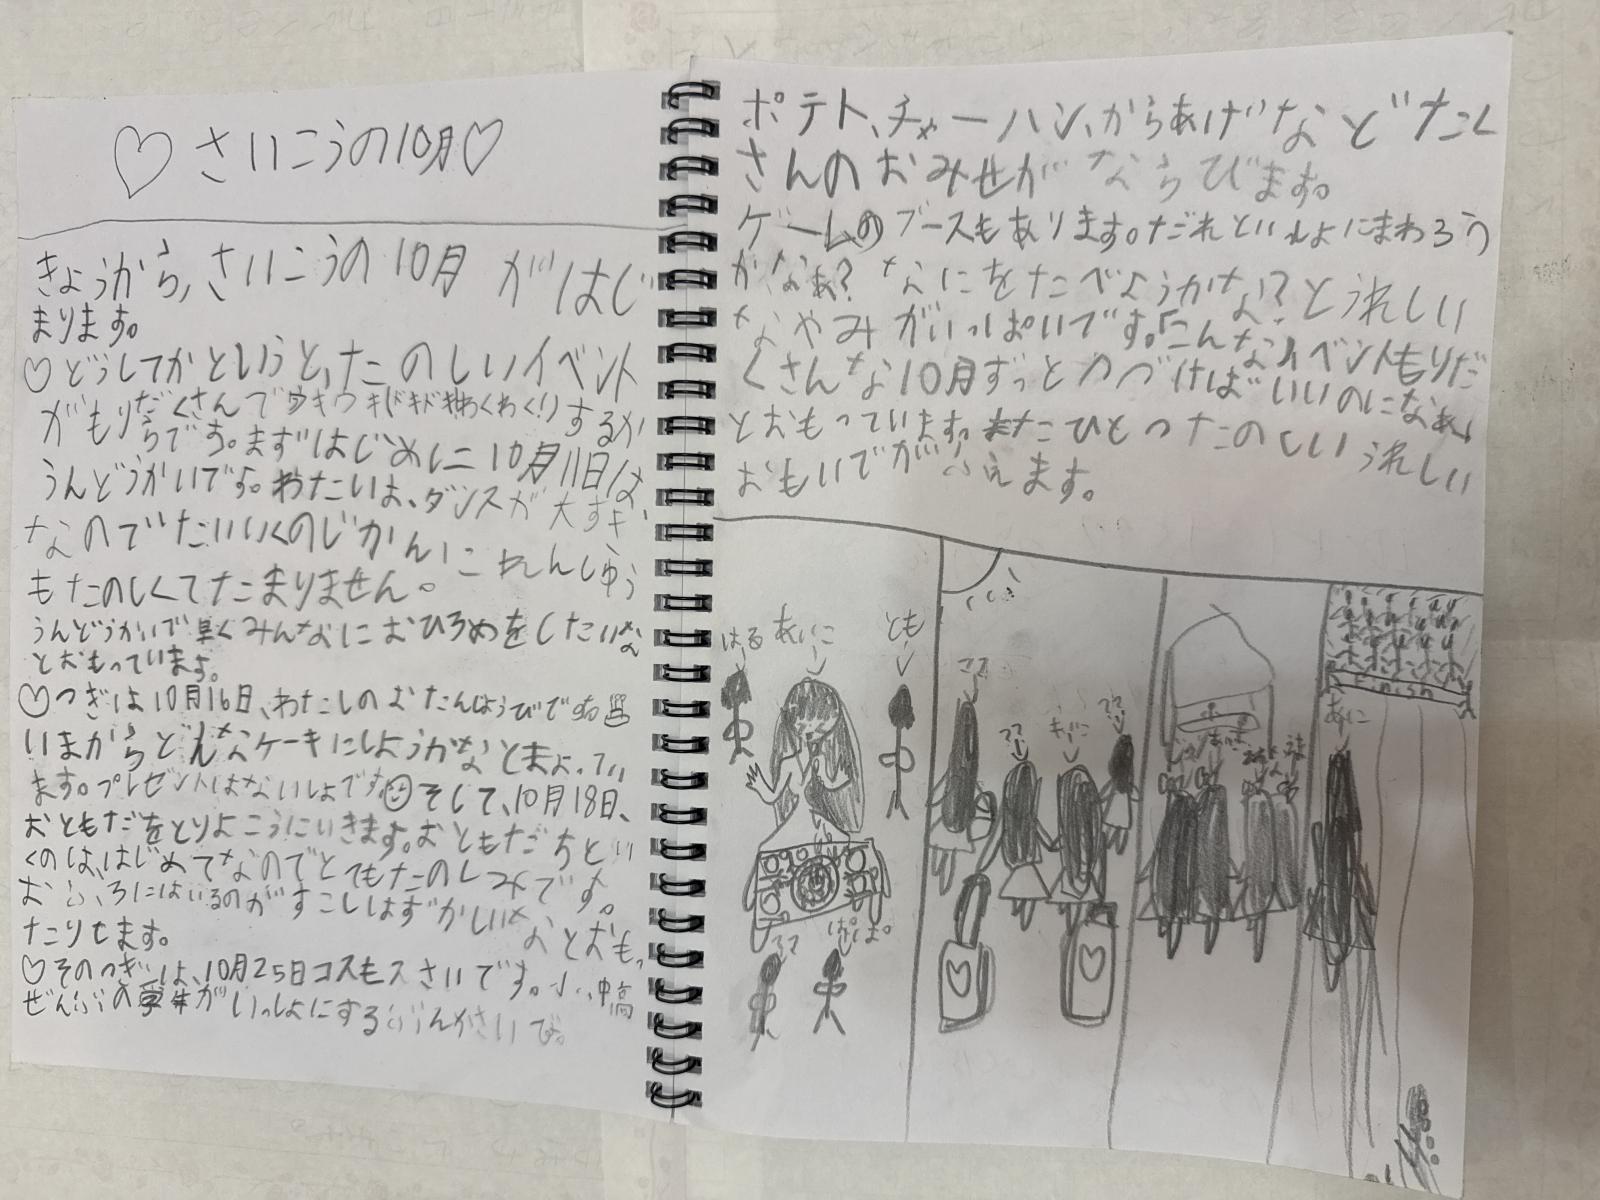 ♡さいこうの10月♡
きょうから、さいこうの10月がはじ
まります。
♡どうしてかというと、たのしいイベント
がもりだくさんでウキウキ(ドキドキわくわく!)するか
らです。まずはじめに10月11日は
うんどうかいです。わたいは、ダンスが大すき
なのでたいいくのじかんにれんしゅう
もたのしくてたまりません。
うんどうかいで早くみんなにおひろめをしたいな
とおもっています。
♡つぎは10月16日、わたしのおたんじょうびです。
いまからどんなケーキにしようかなとまよってい
ます。プレゼントはないしょです。そして、10月18日、
おともだをとりよこうにいきます。おともだちとい
くのは、はじめてなのでとてもたのしみです。
おふろにはいるのがすこしはずかしいなとおもっ
たりします。
♡そのつぎは、10月25日コスモスさいです。小、中高
ぜんぶの学年がいっしょにするぶんかさいで。
ポテト、チャーハン、からあげなどたく
さんのおみせがならびます。
ゲームのブースもあります。だれといしょにまわろう
かなぁ?なにをたべようかな?とうれしい
なやみがいっぱいです。「こんなイベントもりだ
くさんな10月ずっとつづけばいいのになぁ」
とおもっています。またひとつたのしいうれしい
おもいでがふえます。
はる
あいこ
とも
ママ
ぱぱ
ココ
ママ
ママ
Finish
あに